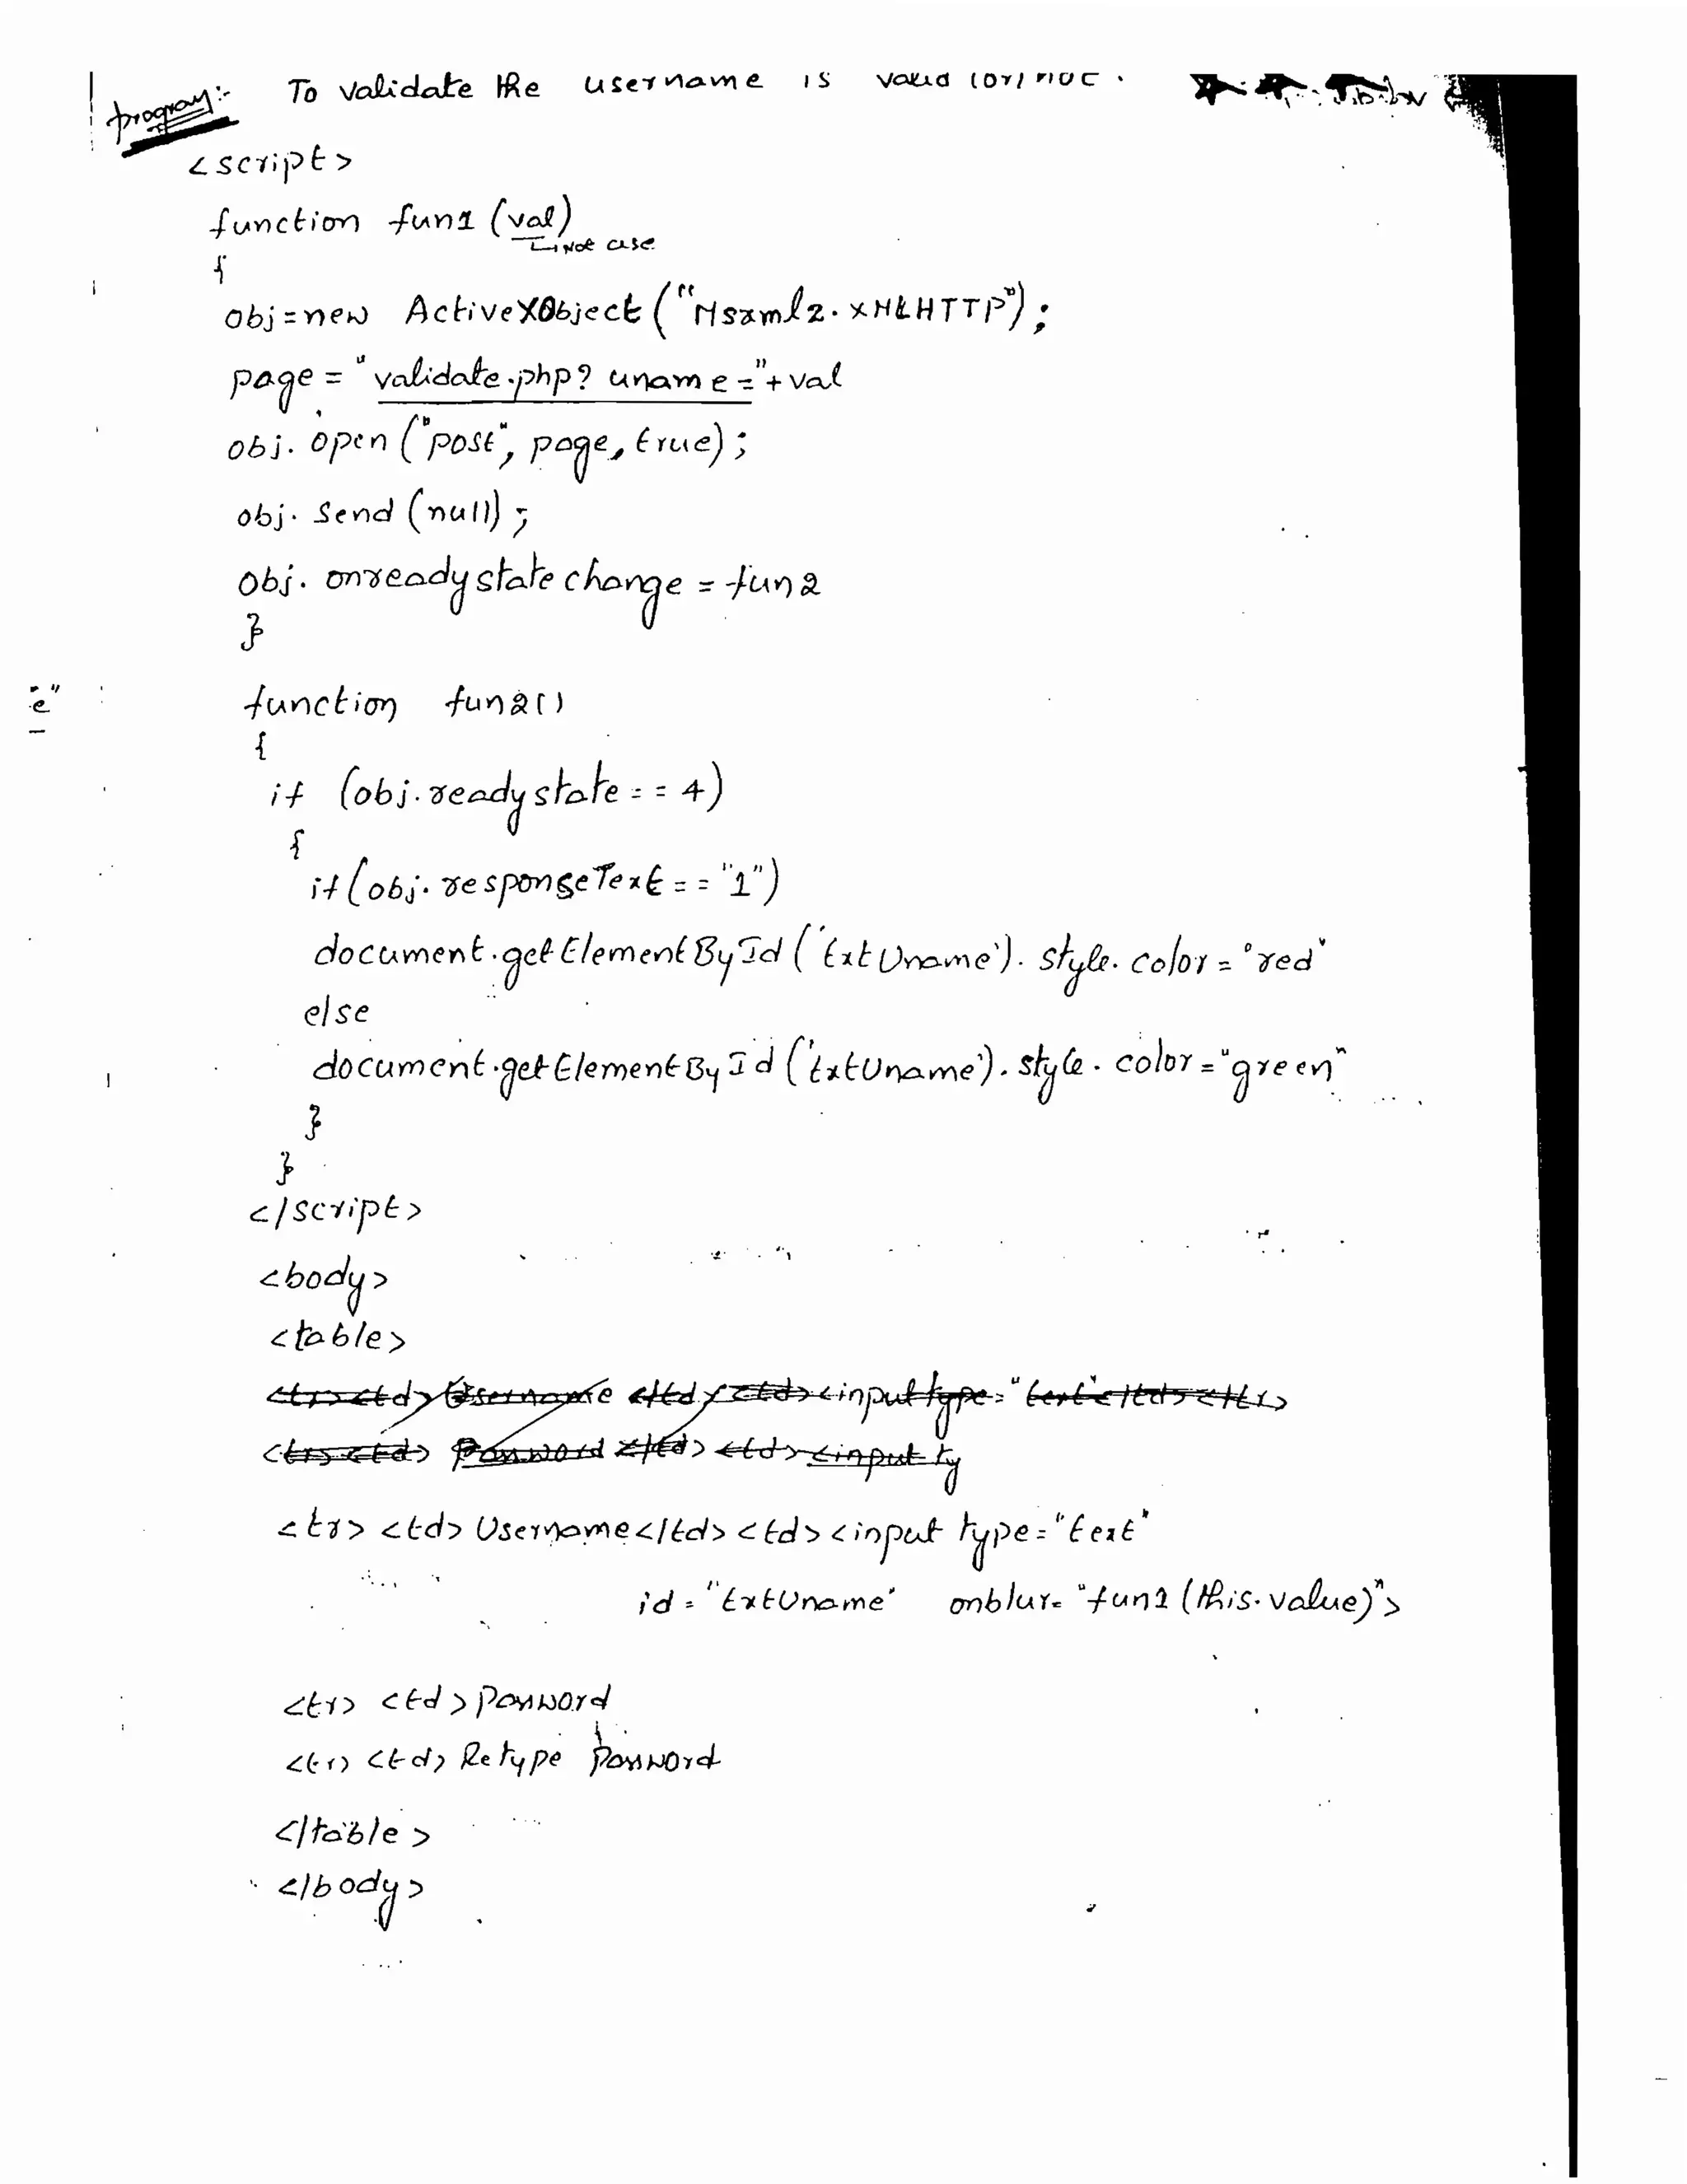 program:- To validate the username is valid (or) not.
<script>
function fun1 (val)
{
obj=new ActiveXObject ("Msxml2.XMLHTTP");
page = "validate.php? uname ="+val
obj. open ("post", page, true);
obj. Send (null);
obj. onreadystatechange = fun2
}
e"
function fun2()
{
if (obj.readystate == 4)
{
if (obj.responseText == "1")
document.getElementById ('txtUname'). style. color = "red"
else
document.getElementById ('txtUname'). style. color = "green"
}
}
</script>
<body>
<table>
<tr><td>Username </td><td><input type="text"</td></tr>
<tr><td> Password </td><td><input ty
<tr> <td> Username</td> <td> <input type="text"
id = "txtUname" onblur= "fun1 (this.value)">
<tr> <td> Password
<tr> <td> Retype Password
</table>
</body>